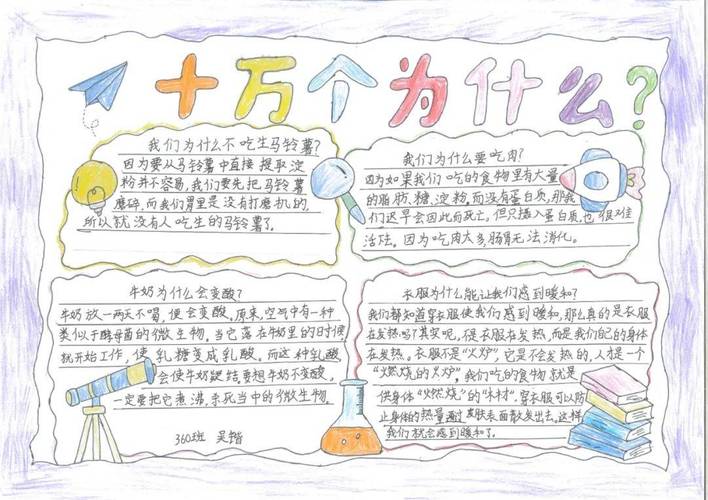 十万个为什么?
我们为什么不吃生马铃薯?
因为要从马铃薯中直接提取淀
粉并不容易,我们要先把马铃薯
磨碎,而我们胃里是没有打磨机的,
所以就没有人吃生的马铃薯了。
我们为什么要吃肉?
因为如果我们吃的食物里有大量
的脂肪、糖、淀粉,而没有蛋白质,那我
们迟早会因此而死亡。但只摄入蛋白质,也很难
活。因为吃肉太多,肠胃无法消化。
牛奶为什么会变酸?
牛奶放一两天不喝,便会变酸,原来,空气中有一种
类似于酵母菌的微生物。当它落在牛奶里的时候
就开始工作,使乳糖变成乳酸。而这种乳酸
会使牛奶凝结,要想牛奶不变酸,
一定要把它煮沸,杀死当中的微生物。
360班 吴锴
衣服为什么能让我们感到暖和?
我们都知道穿衣服使我们感到暖和,那么真的是衣服
在发热吗?其实呢,不是衣服在发热,而是我们自己的身体
在发热。衣服不是“火炉”,它是不会发热的,人才是一个
“燃烧的火炉”,我们吃的食物就是
供身体“燃烧”的“木材”。穿衣服可以防
止身体的热量通过皮肤表面散发出去。这样
我们就会感到暖和了。